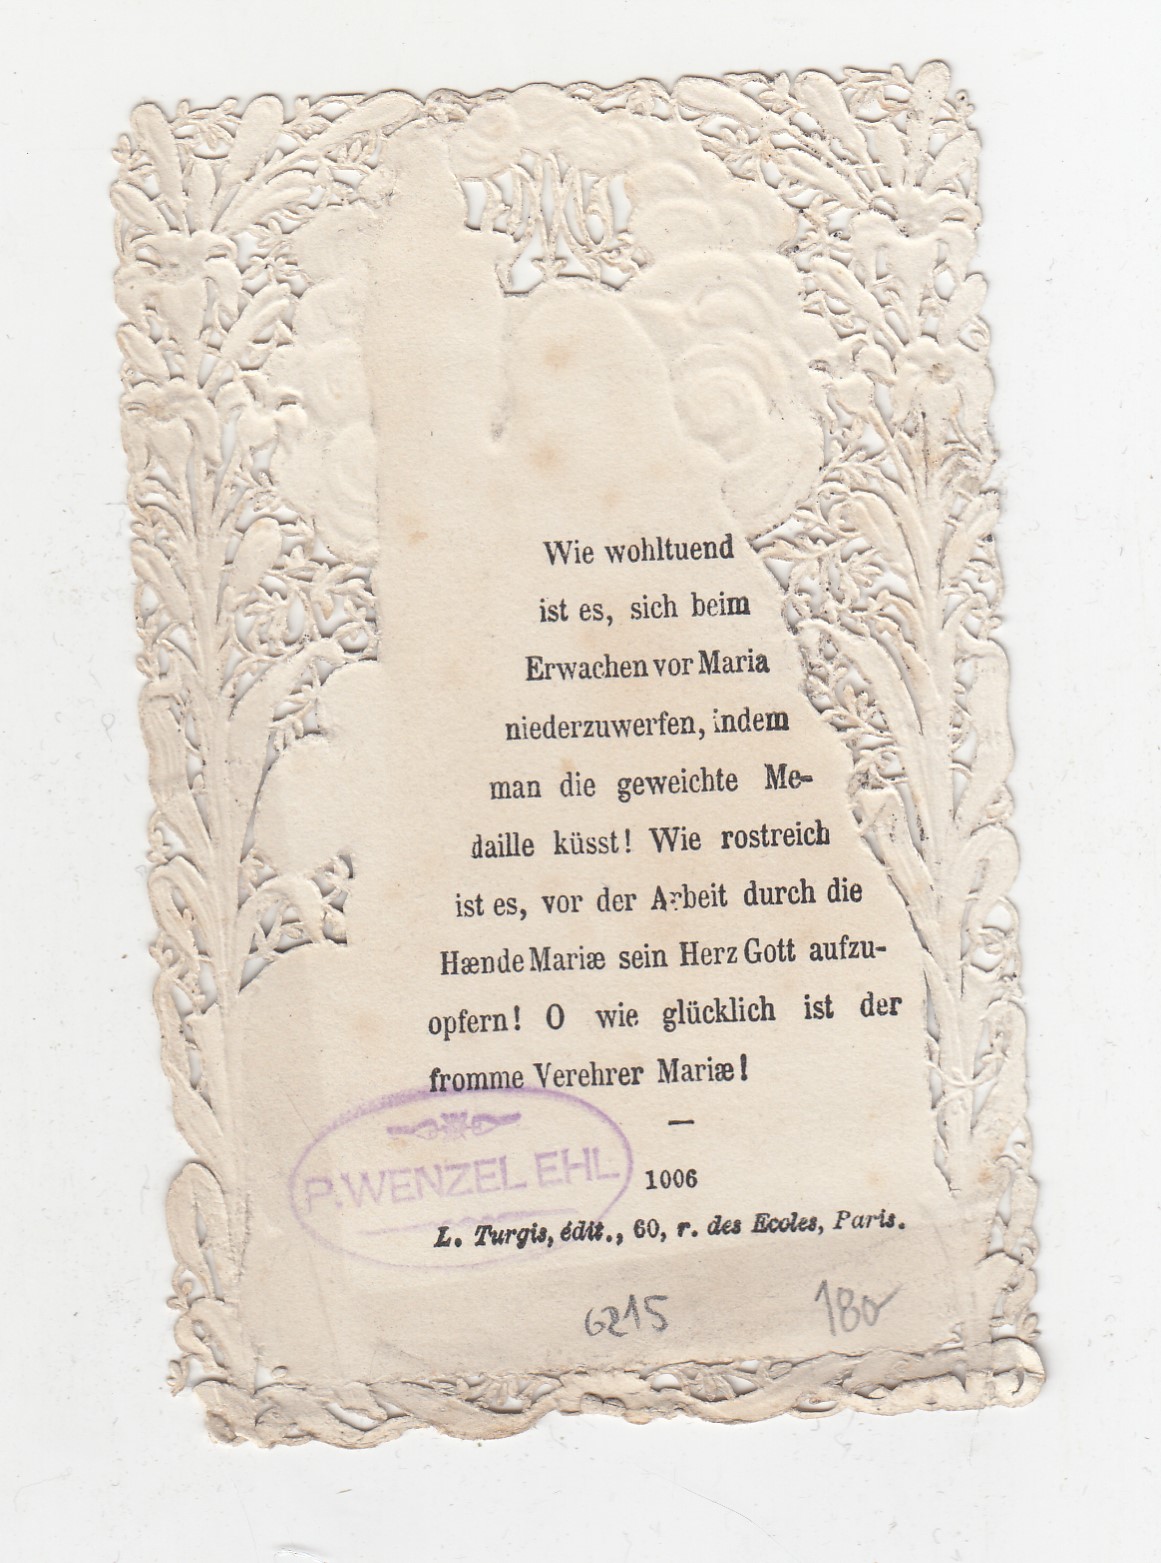 Wie wohltuend
ist es, sich beim
Erwachen vor Maria
niederzuwerfen, indem
man die geweichte Me-
daille küsst! Wie rostreich
ist es, vor der Arbeit durch die
Hænde Mariæ sein Herz Gott aufzu-
opfern! O wie glücklich ist der
fromme Verehrer Mariæ!
—
P. WENZEL EHL
1006
L. Turgis, édit., 60, r. des Ecoles, Paris.
6215 180